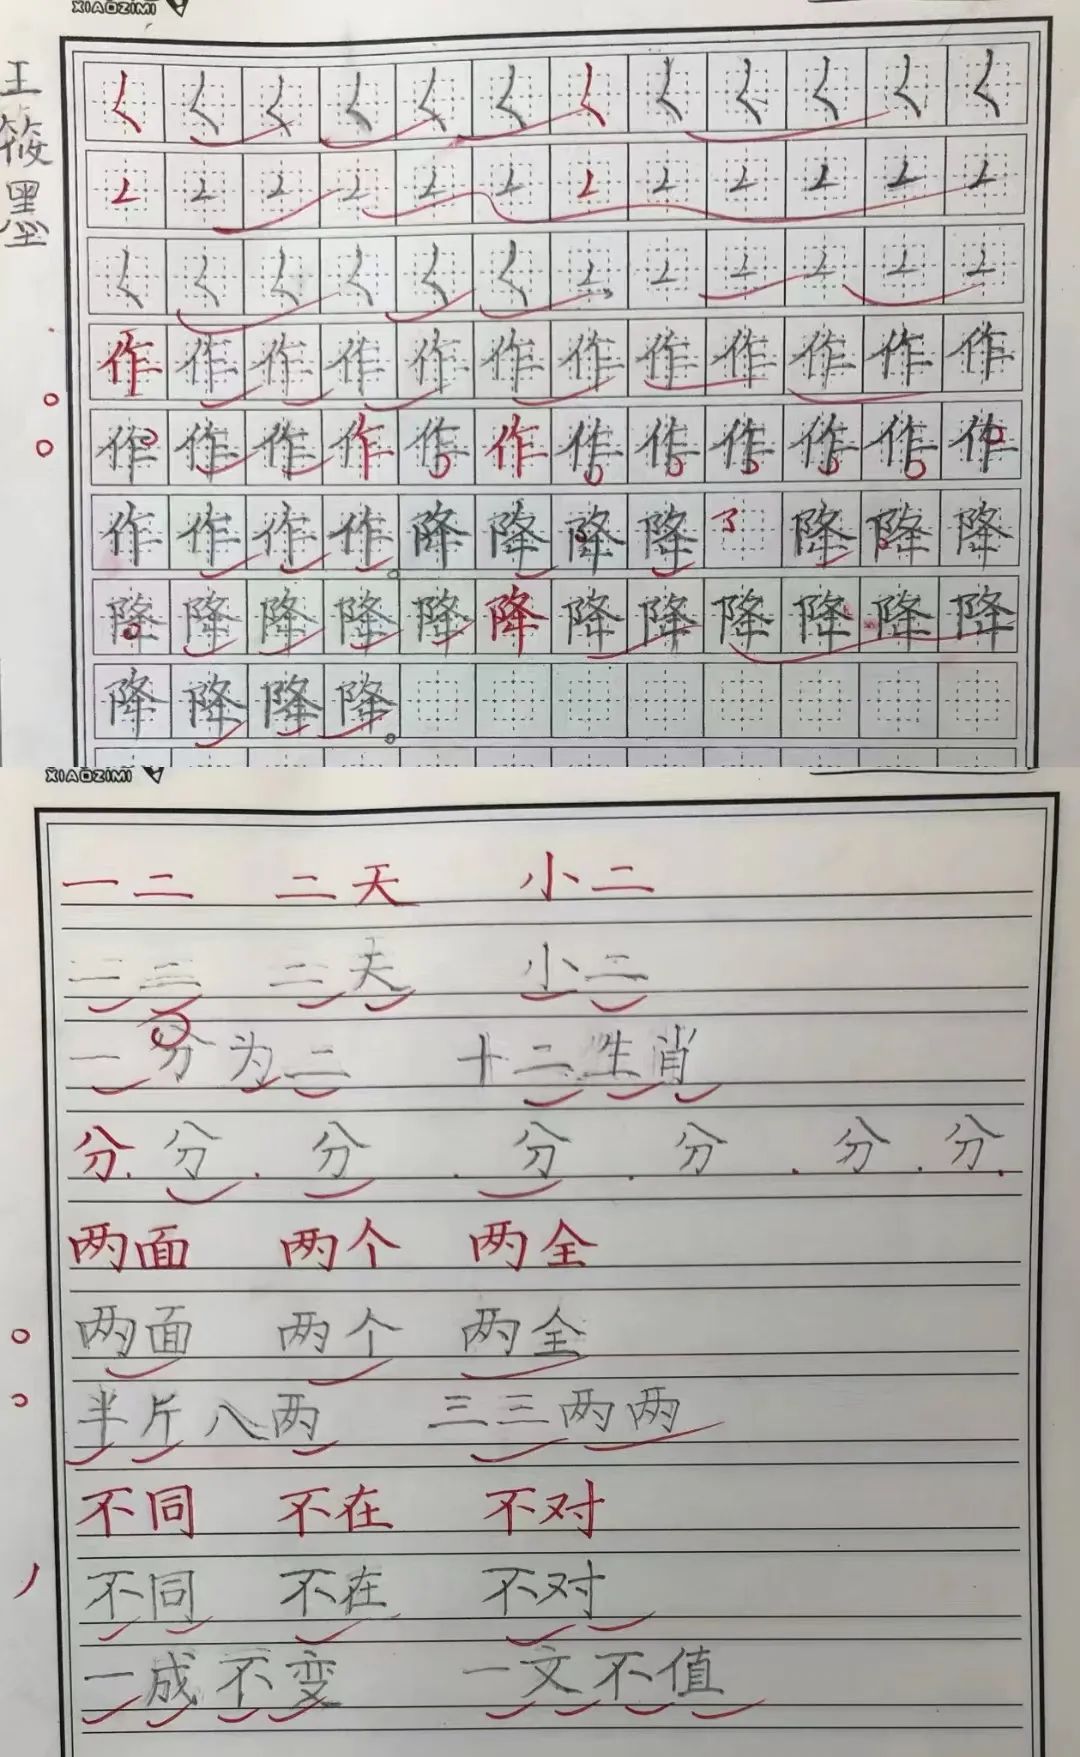 XIAOZIMI
王筱墨
𡿨 𡿨 𡿨 𡿨 𡿨 𡿨 𡿨 𡿨 𡿨 𡿨 𡿨 𡿨
作 作 作 作 作 作 作 作 作 作 作 作
作 作 作 作 作 作 作 作 作 作 作 作
作 作 作 作 降 降 降 降 降 降 降
降 降 降 降 降 降 降 降 降 降 降 降
降 降 降 降
XIAOZIMI
一二 二天 小二
一二 二天 小二
一分为二 十二生肖
分 分 分 分 分 分 分
两面 两个 两全
两面 两个 两全
半斤八两 三三两两
不同 不在 不对
不同 不在 不对
一成不变 一文不值